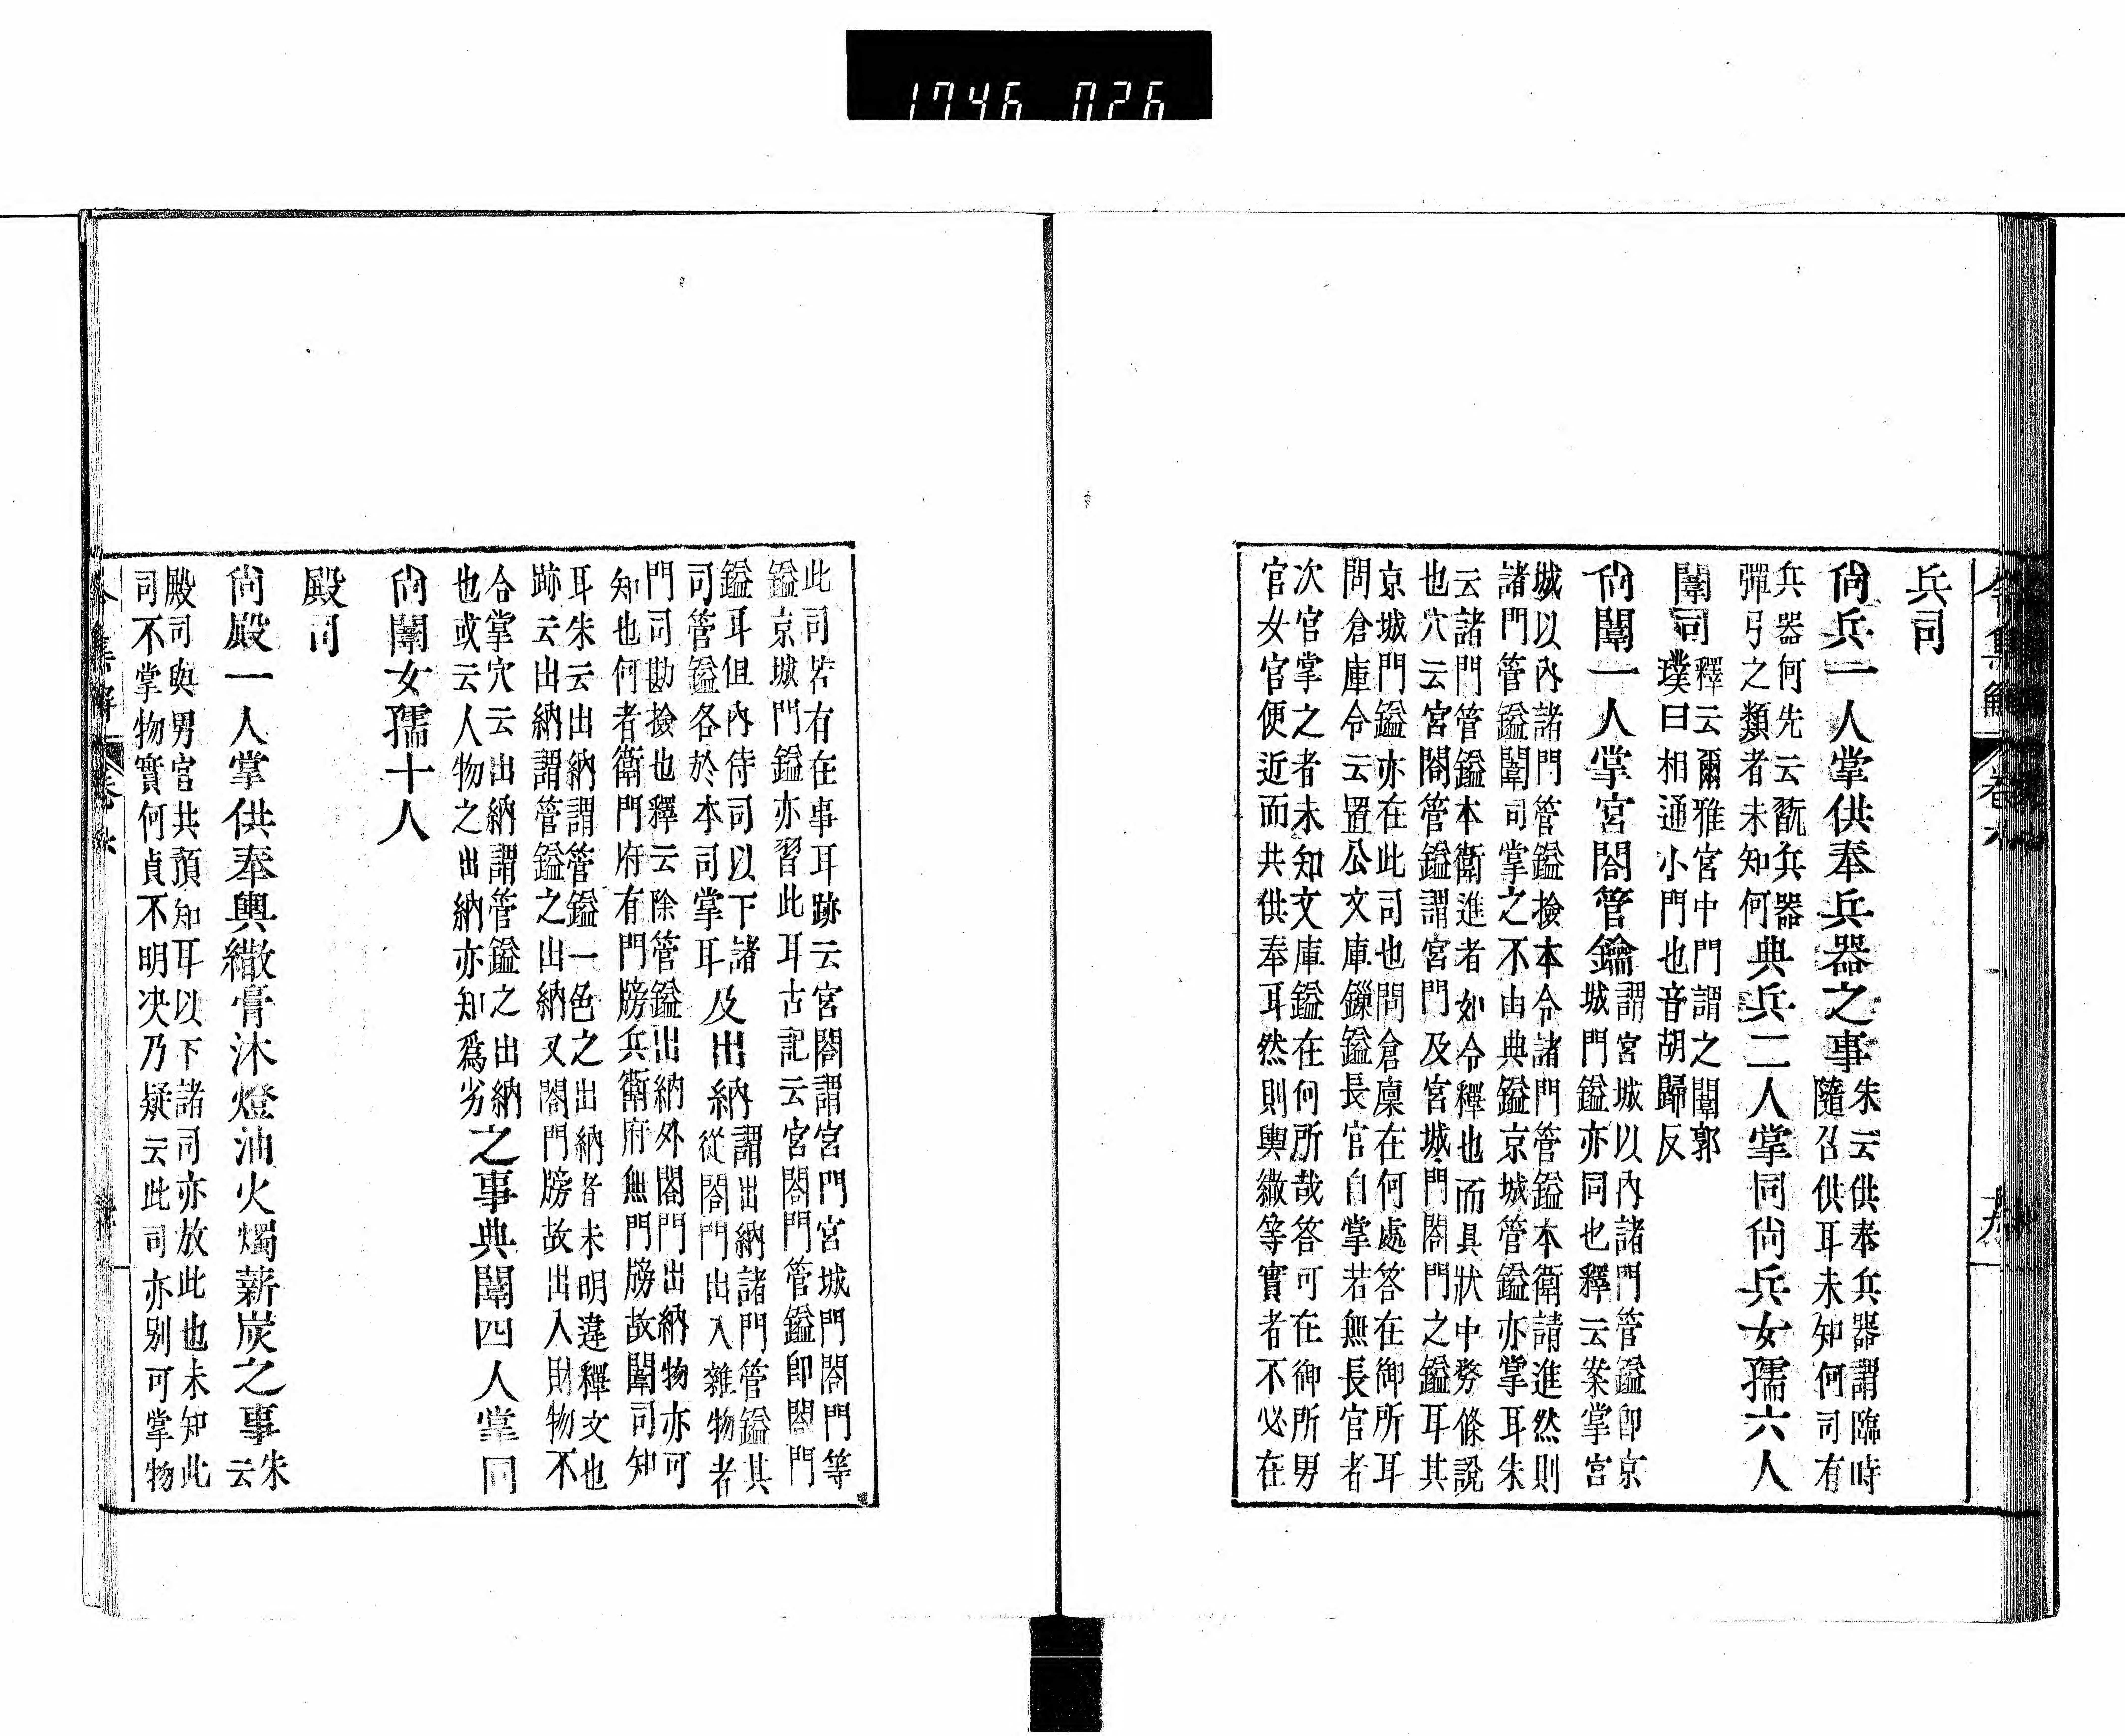 1746 026
兵司
尚兵一人掌供奉兵器之事朱云供奉兵器謂臨時
隨召供耳未知何司有
兵器何先云翫兵器
彈弓之類者未知何典兵二人掌同尚兵女孺六人
闈司釋云爾雅宮中門謂之闈郭
璞曰相通小門也音胡歸反
尚闈一人掌宮閤管鑰謂宮城以內諸門管鎰卽京
城門鎰亦同也釋云案掌宮
城以內諸門管鎰撿本令諸門管鎰本衛請進然則
諸門管鎰闈司掌之不由典鎰京城管鎰亦掌耳朱
云諸門管鎰本衛進者如令釋也而具狀中務條說
也穴云宮閤管鎰謂宮門及宮城門閤門之鎰耳其
京城門鎰亦在此司也問倉廩在何處答在御所耳
問倉庫令云置公文庫鏁鎰長官自掌若無長官者
次官掌之者未知文庫鎰在何所哉答可在御所男
官女官便近而共供奉耳然則輿繖等實者不必在
此司若有在事耳跡云宮閤謂宮門宮城門閤門等
鎰京城門鎰亦習此耳古記云宮閤門管鎰卽閤門
鎰耳但內侍司以下諸
司管鎰各於本司掌耳及出納謂出納諸門管鎰其
從閤門出入雜物者
門司勘撿也釋云除管鎰出納外閤門出納物亦可
知也何者衛門府有門牓兵衛府無門牓故闈司知
耳朱云出納謂管鎰一色之出納者未明違釋文也
跡云出納謂管鎰之出納又閤門牓故出入財物不
合掌穴云出納謂管鎰之出納
也或云人物之出納亦知爲劣之事典闈四人掌同
尚闈女孺十人
殿司
尚殿一人掌供奉輿繖膏沐燈油火燭薪炭之事朱
云
殿司與男官共預知耳以下諸司亦放此也未知此
司不掌物實何貞不明决乃疑云此司亦別可掌物